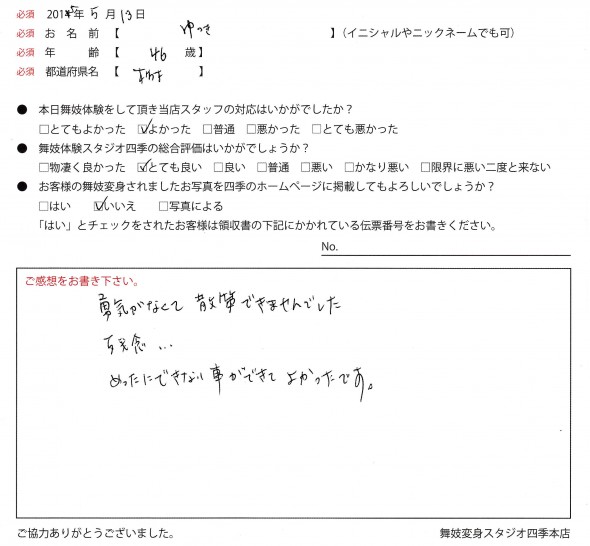 必須 2015年 5月 13日
必須 お名前【 ゆつき 】(イニシャルやニックネームでも可)
必須 年齢【 46 歳】
必須 都道府県名【 】
● 本日舞妓体験をして頂き当店スタッフの対応はいかがでしたか?
□とてもよかった ☑よかった □普通 □悪かった □とても悪かった
● 舞妓体験スタジオ四季の総合評価はいかがでしょうか?
□物凄く良かった ☑とても良い □良い □普通 □悪い □かなり悪い □限界に悪い二度と来ない
● お客様の舞妓変身されましたお写真を四季のホームページに掲載してもよろしいでしょうか?
□はい ☑いいえ □写真による
「はい」とチェックをされたお客様は領収書の下記にかかれている伝票番号をお書きください。
No.
ご感想をお書き下さい。
勇気がなくて 散策できませんでした
残念…
めったにできない事ができて よかったです。
ご協力ありがとうございました。
舞妓変身スタジオ四季本店